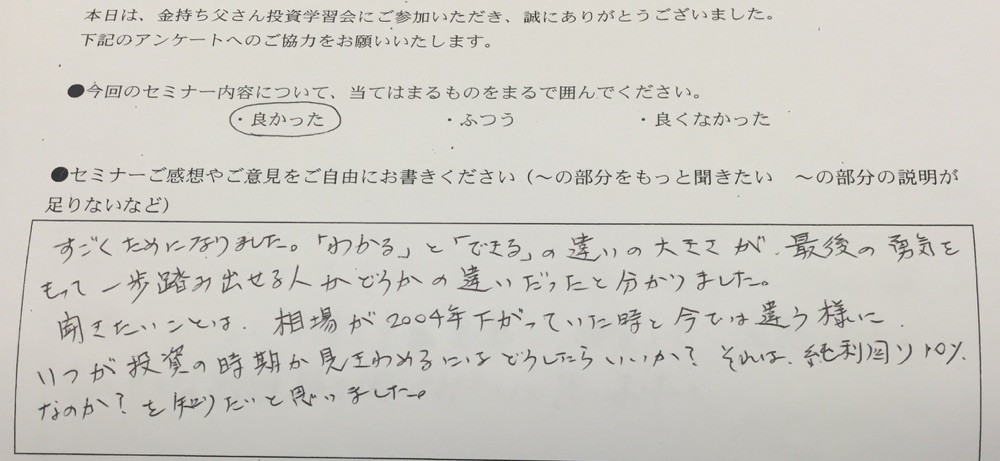 本日は、金持ち父さん投資学習会にご参加いただき、誠にありがとうございました。
下記のアンケートへのご協力をお願いいたします。
●今回のセミナー内容について、当てはまるものをまるで囲んでください。
・良かった ・ふつう ・良くなかった
●セミナーご感想やご意見をご自由にお書きください(~の部分をもっと聞きたい ~の部分の説明が
足りないなど)
すごくためになりました。「わかる」と「できる」の違いの大きさが、最後の勇気を
もって一歩踏み出せる人かどうかの違いだったと分かりました。
聞きたいことは、相場が2004年下がっていた時と今では違う様に、
いつが投資の時期か見きわめるにはどうしたらいいか?それは、純利回り10%
なのか?を知りたいと思いました。